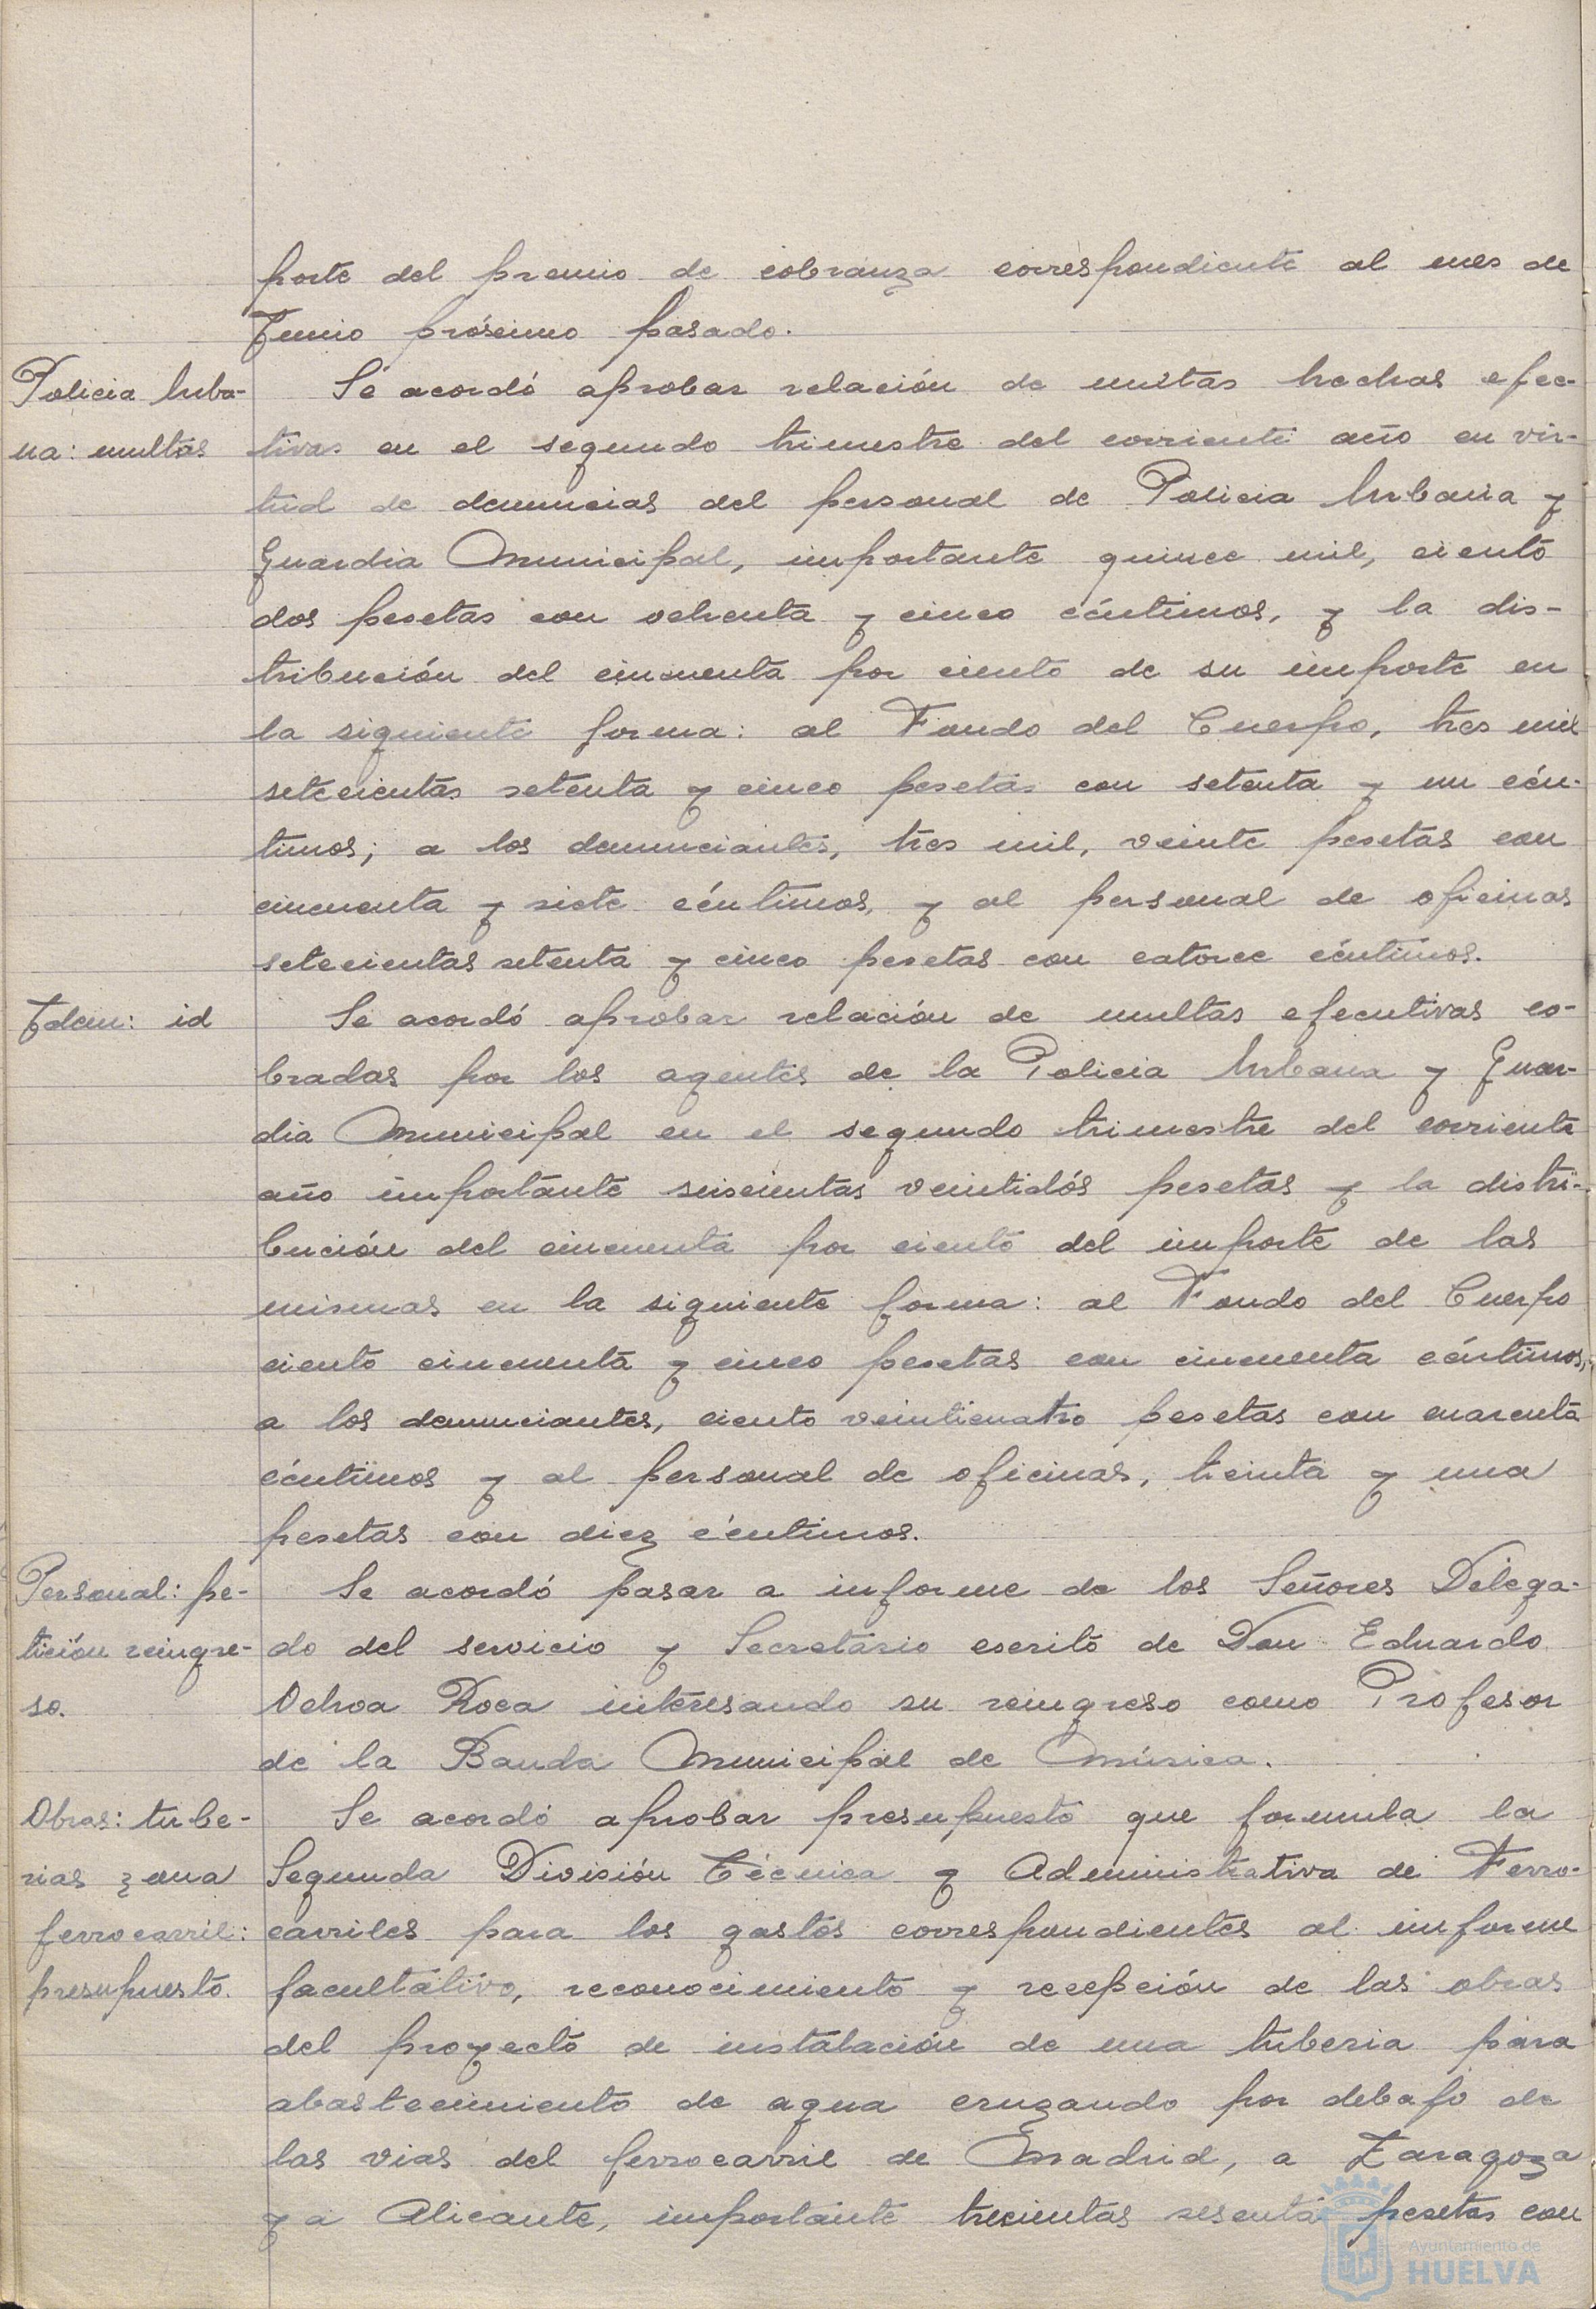 porte del premio de cobranza correspondiente al mes de
Junio próximo pasado.
Policia Urba-
na: multas
Se acordó aprobar relación de multas hechas efec-
tivas en el segundo trimestre del corriente año en vir-
tud de denuncias del personal de Policia Urbana y
Guardia Municipal, importante quince mil, ciento
dos pesetas con ochenta y cinco céntimos, y la dis-
tribución del cincuenta por ciento de su importe en
la siguiente forma: al Fondo del Cuerpo, tres mil
setecientas setenta y cinco pesetas con setenta y un cén-
timos; a los denunciantes, tres mil, veinte pesetas con
cincuenta y siete céntimos, y al personal de oficinas
setecientas setenta y cinco pesetas con catorce céntimos.
Idem: id
Se acordó aprobar relación de multas efecutivas co-
bradas por los agentes de la Policia Urbana y Guar-
dia Municipal en el segundo trimestre del corriente
año importante seiscientas veintidós pesetas y la distri-
bución del cincuenta por ciento del importe de las
mismas en la siguiente forma: al Fondo del Cuerpo
ciento cincuenta y cinco pesetas con cincuenta céntimos,
a los denunciantes, ciento veinticuatro pesetas con cuarenta
céntimos y al personal de oficinas, treinta y una
pesetas con diez céntimos.
Personal: pe-
tición reingre-
so.
Se acordó pasar a informe de los Señores Delega-
do del servicio y Secretario escrito de Don Eduardo
Ochoa Roca interesando su reingreso como Profesor
de la Banda Municipal de Música.
Obras: tube-
rias zona
ferrocarril:
presupuesto.
Se acordó aprobar presupuesto que formula la
Segunda División Técnica y Administrativa de Ferro-
carriles para los gastos correspondientes al informe
facultativo, reconocimiento y recepción de las obras
del proyecto de instalación de una tuberia para
abastecimiento de agua cruzando por debajo de
las vias del ferrocarril de Madrid, a Zaragoza
y a Alicante, importante trecientas sesenta pesetas con
Ayuntamiento de
HUELVA